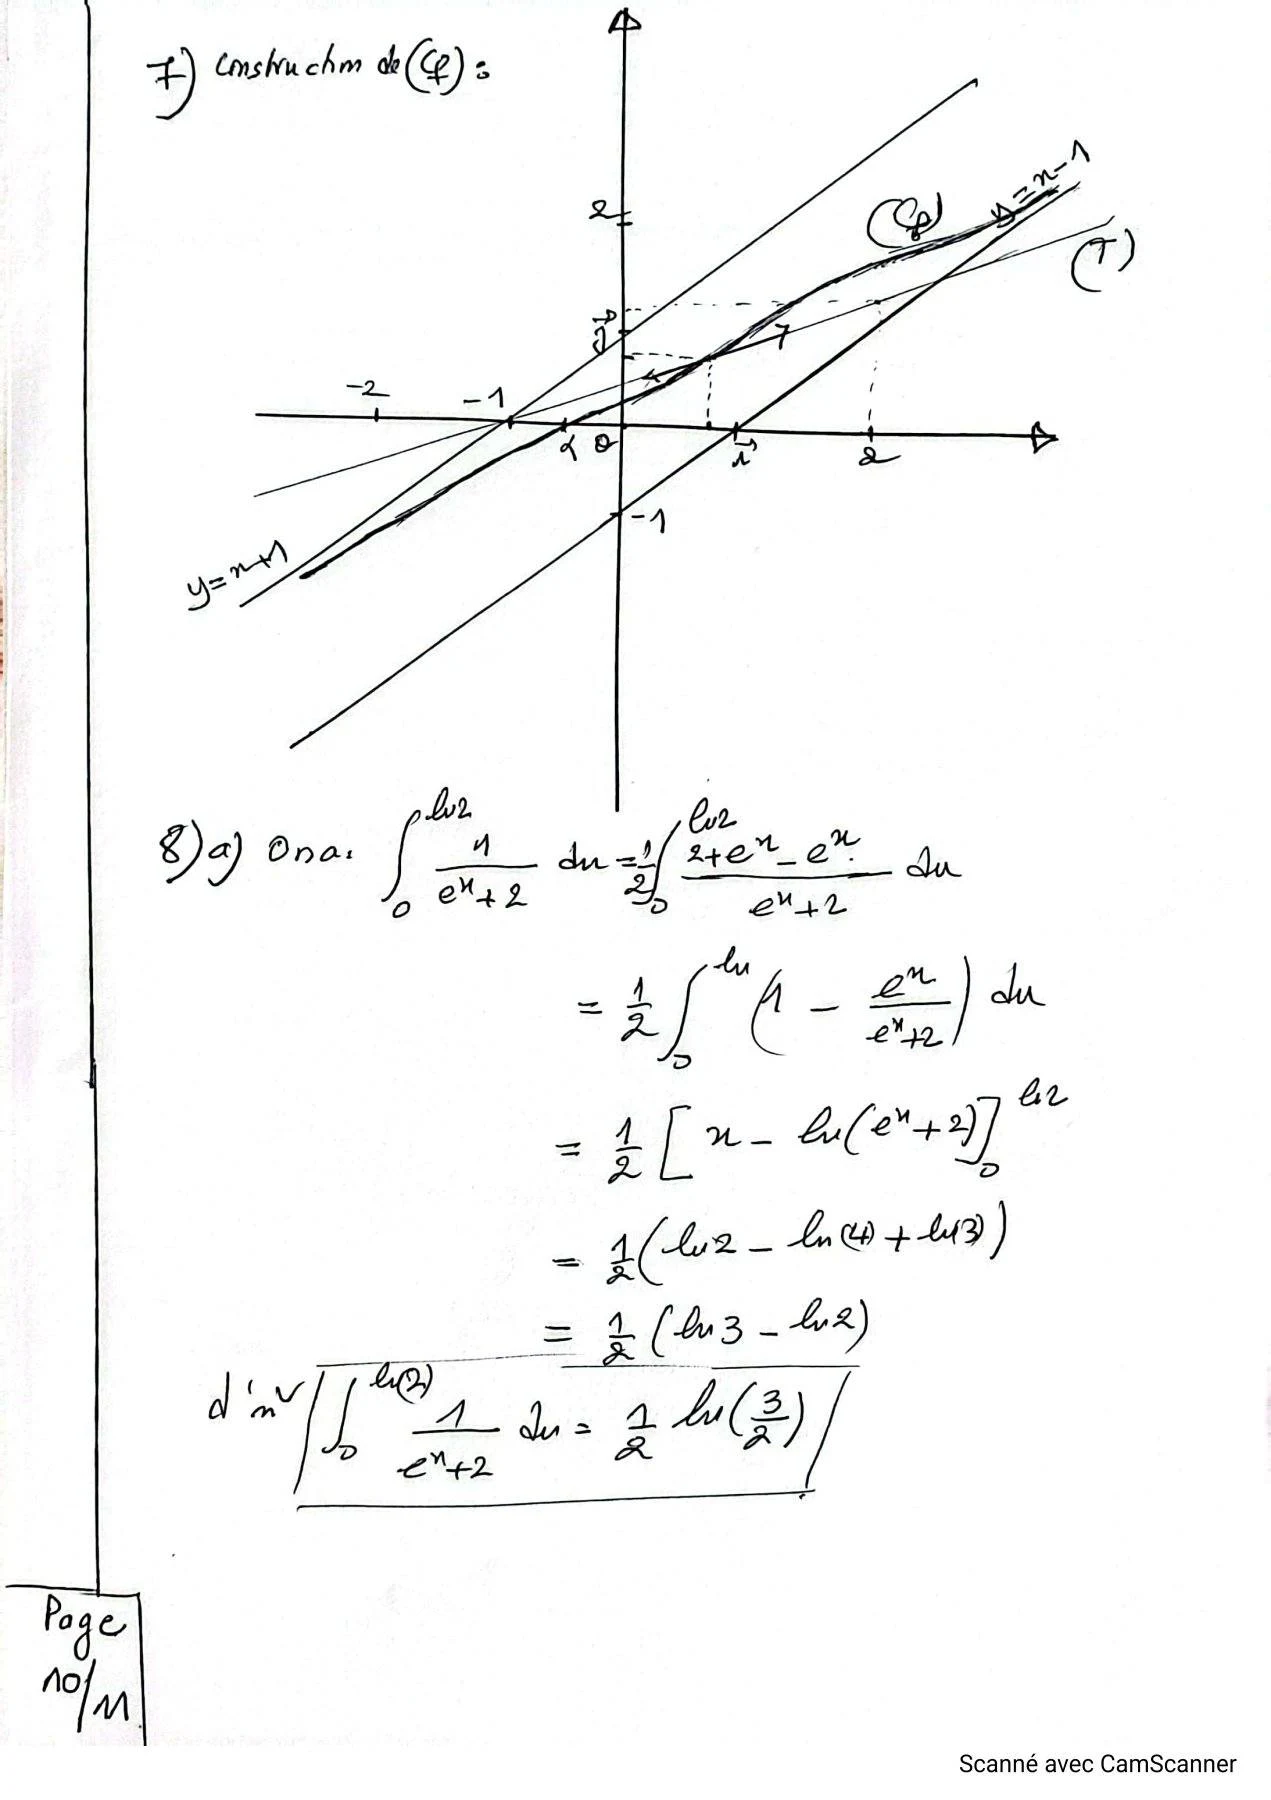 7) Construction de (Cf) :
2
(Cf)
y = x-1
(T)
j
-2
-1
α
0
i
2
-1
y = x+1
8) a) On a : ∫₀^{ln2} 1/(e^x+2) dx = 1/2 ∫₀^{ln2} (2+e^x-e^x)/(e^x+2) dx
= 1/2 ∫₀^{ln} (1 - e^x/(e^x+2)) dx
= 1/2 [x - ln(e^x+2)]₀^{ln2}
= 1/2 (ln2 - ln(4) + ln(3))
= 1/2 (ln3 - ln2)
∫₀^{ln(2)} 1/(e^x+2) dx = 1/2 ln(3/2)
Page
10/11
Scanné avec CamScanner